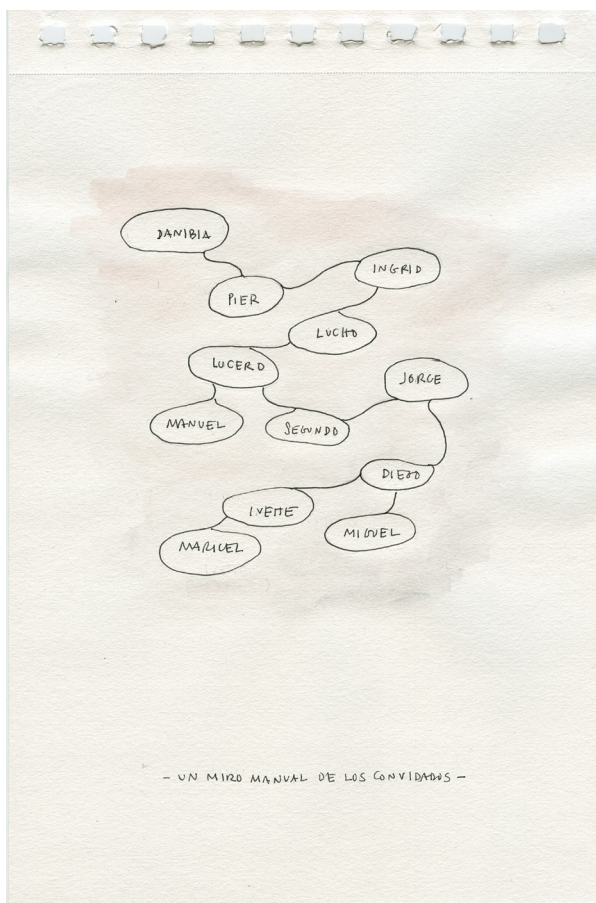 DANIBIA
INGRID
PIER
LUCHO
LUCERO
JORGE
MANUEL
SEGUNDO
DIEGO
IVETTE
MIGUEL
MARICEL
- UN MIRO MANUAL DE LOS CONVIDADOS -